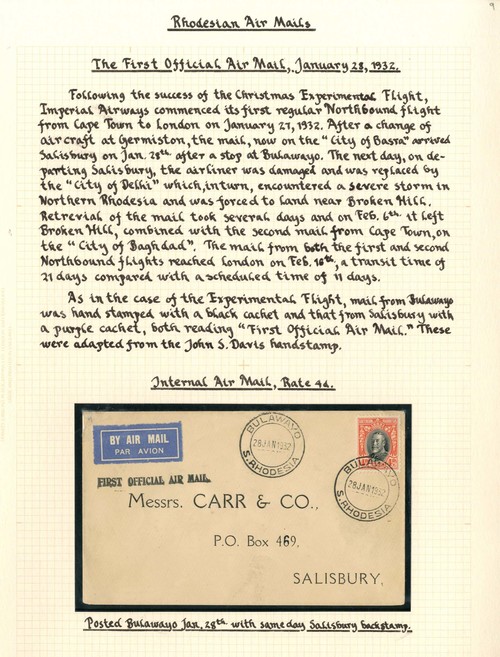 Rhodesian Air Mails
The First Official Air Mail, January 28, 1932.
Following the success of the Christmas Experimental Flight,
Imperial Airways commenced its first regular Northbound flight
from Cape Town to London on January 27, 1932. After a change of
aircraft at Germiston, the mail, now on the "City of Basra" arrived
Salisbury on Jan. 28th after a stop at Bulawayo. The next day, on de-
parting Salisbury, the airliner was damaged and was replaced by
the "City of Delhi" which, in turn, encountered a severe storm in
Northern Rhodesia and was forced to land near Broken Hill.
Retrevial of the mail took several days and on Feb. 6th. it left
Broken Hill, combined with the second mail from Cape Town, on
the "City of Baghdad". The mail from both the first and second
Northbound flights reached London on Feb. 16th, a transit time of
21 days compared with a scheduled time of 11 days.
As in the case of the Experimental Flight, mail from Bulawayo
was hand stamped with a black cachet and that from Salisbury with
a purple cachet, both reading "First Official Air Mail." These
were adapted from the John S. Davis handstamp.
Internal Air Mail, Rate 4d.
BY AIR MAIL
PAR AVION
BULAWAYO
28 JAN 1932
S. RHODESIA
BULAWAYO
28 JAN 1932
S. RHODESIA
FIRST OFFICIAL AIR MAIL.
Messrs. CARR & CO.,
P.O. Box 469,
SALISBURY.
Posted Bulawayo Jan. 28th with same day Salisbury backstamp.